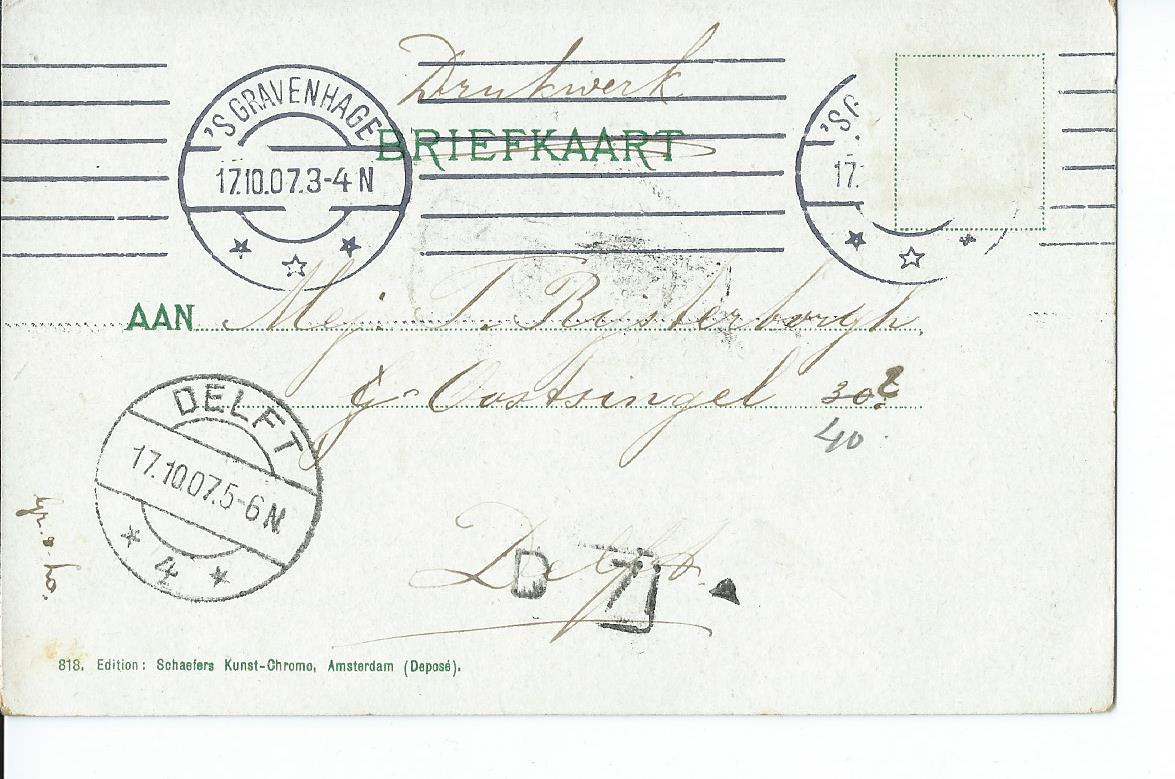 Drukwerk
'S GRAVENHAGE
17.10.07.3-4 N
BRIEFKAART
'SG
17.
AAN Mej. T. Rijsterborgh
Oostsingel 30
40
DELFT
17.10.07.5-6 N
4
Delft.
D 7
818. Edition: Schaefers Kunst-Chromo, Amsterdam (Deposé).